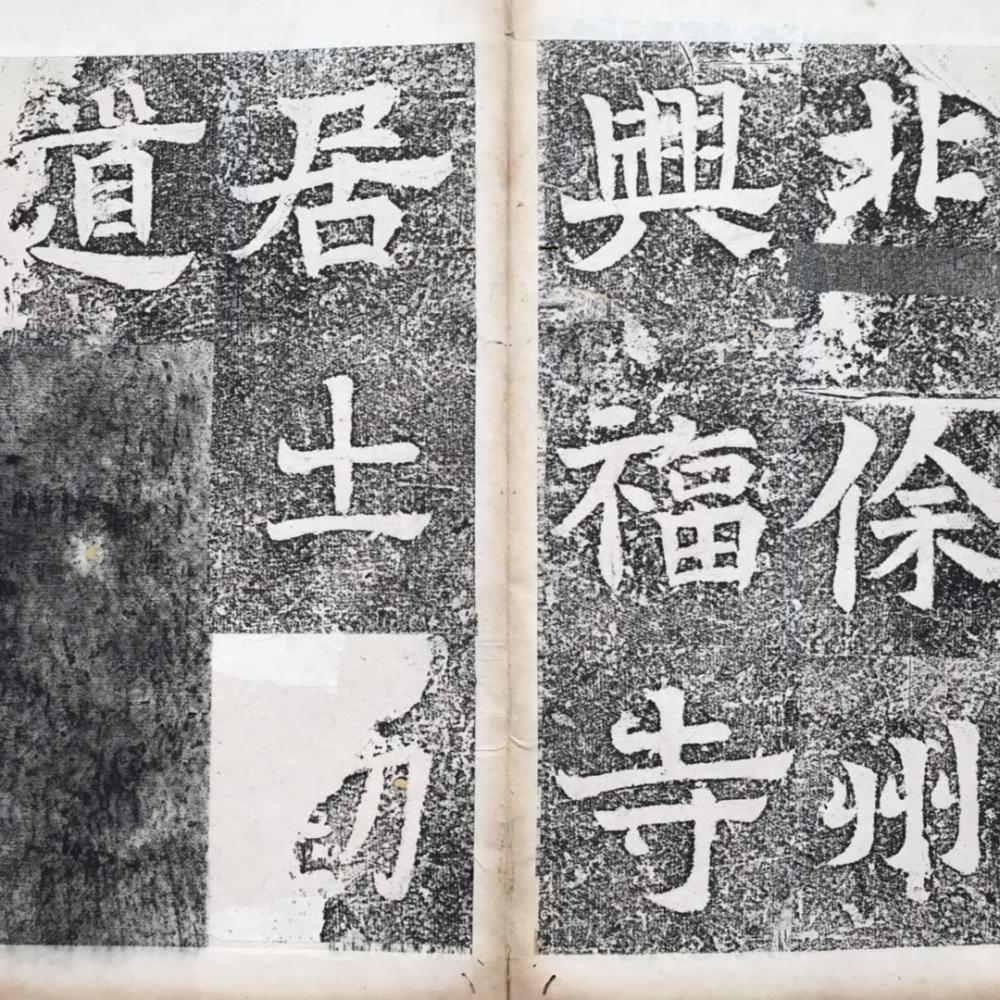 北俆州
興福寺
居士
道